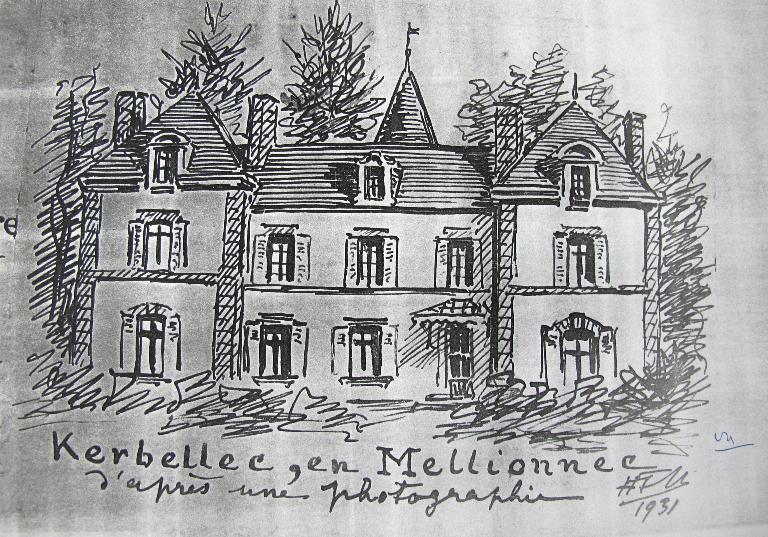 re
Kerbellec, en Mellionnec
d'après une photographie
1931